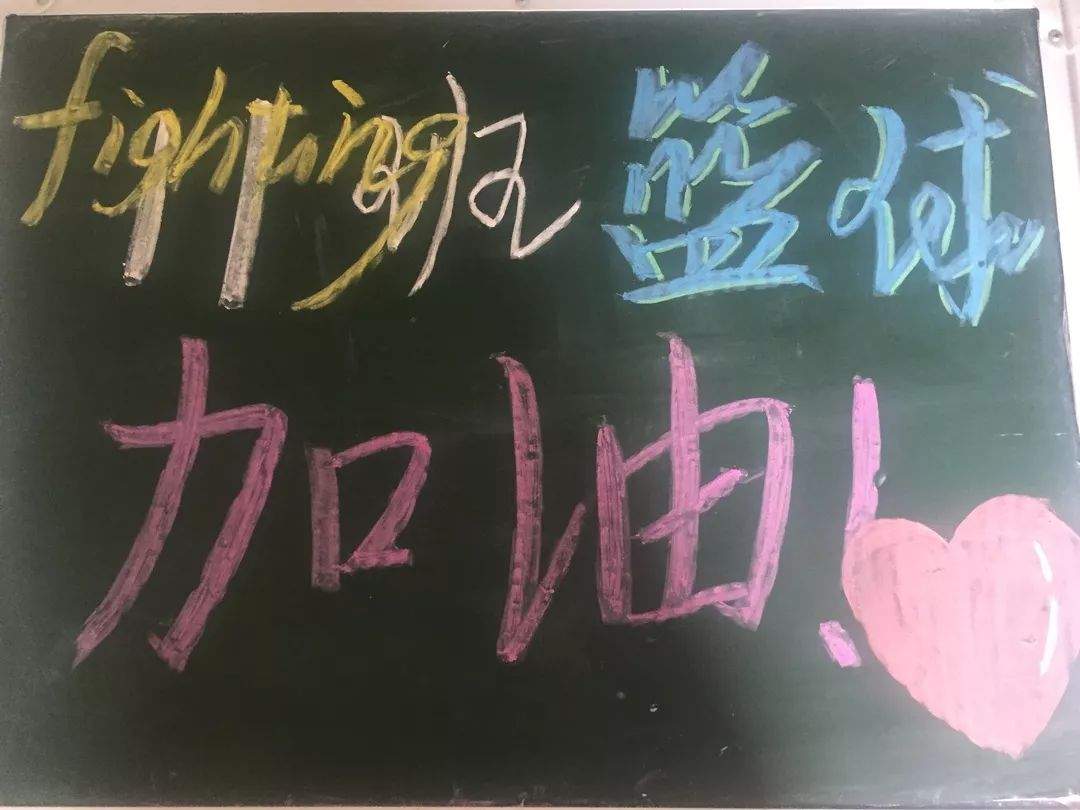 fighting 11班 篮球
加油!